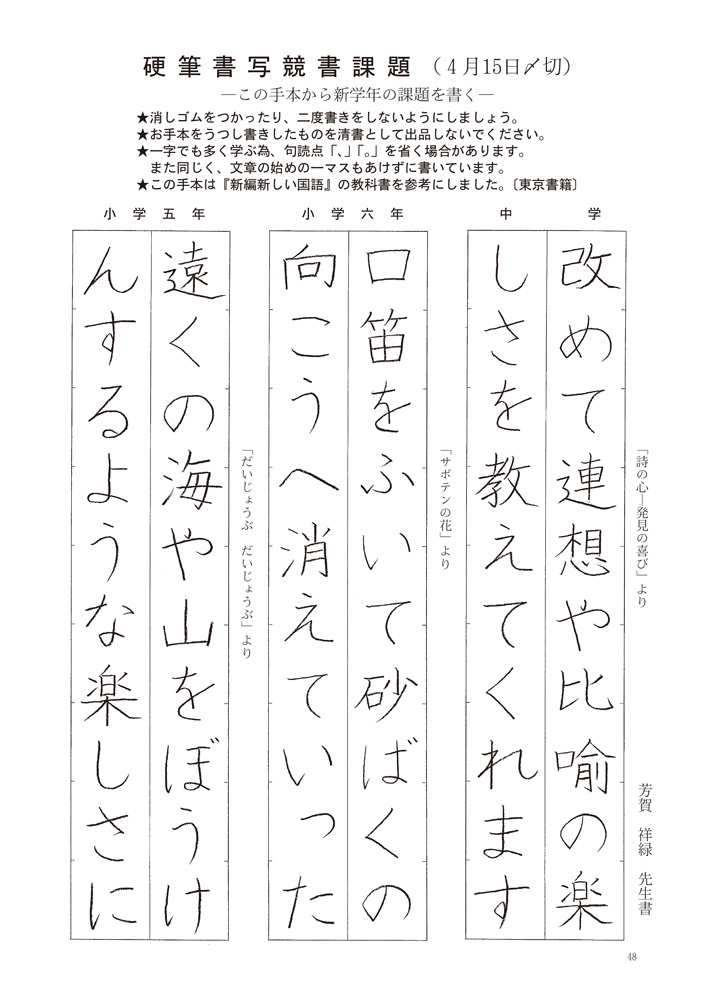 硬筆書写競書課題（4月15日〆切）
―この手本から新学年の課題を書く―
★消しゴムをつかったり、二度書きをしないようにしましょう。
★お手本をうつし書きしたものを清書として出品しないでください。
★一字でも多く学ぶ為、句読点「、」「。」を省く場合があります。
また同じく、文章の始めの一マスもあけずに書いています。
★この手本は『新編新しい国語』の教科書を参考にしました。〔東京書籍〕
中学
「詩の心―発見の喜び」より
芳賀 祥緑 先生書
改めて連想や比喩の楽
しさを教えてくれます
小学六年
「サボテンの花」より
口笛をふいて砂ばくの
向こうへ消えていった
小学五年
「だいじょうぶ だいじょうぶ」より
遠くの海や山をぼうけ
んするような楽しさに
48